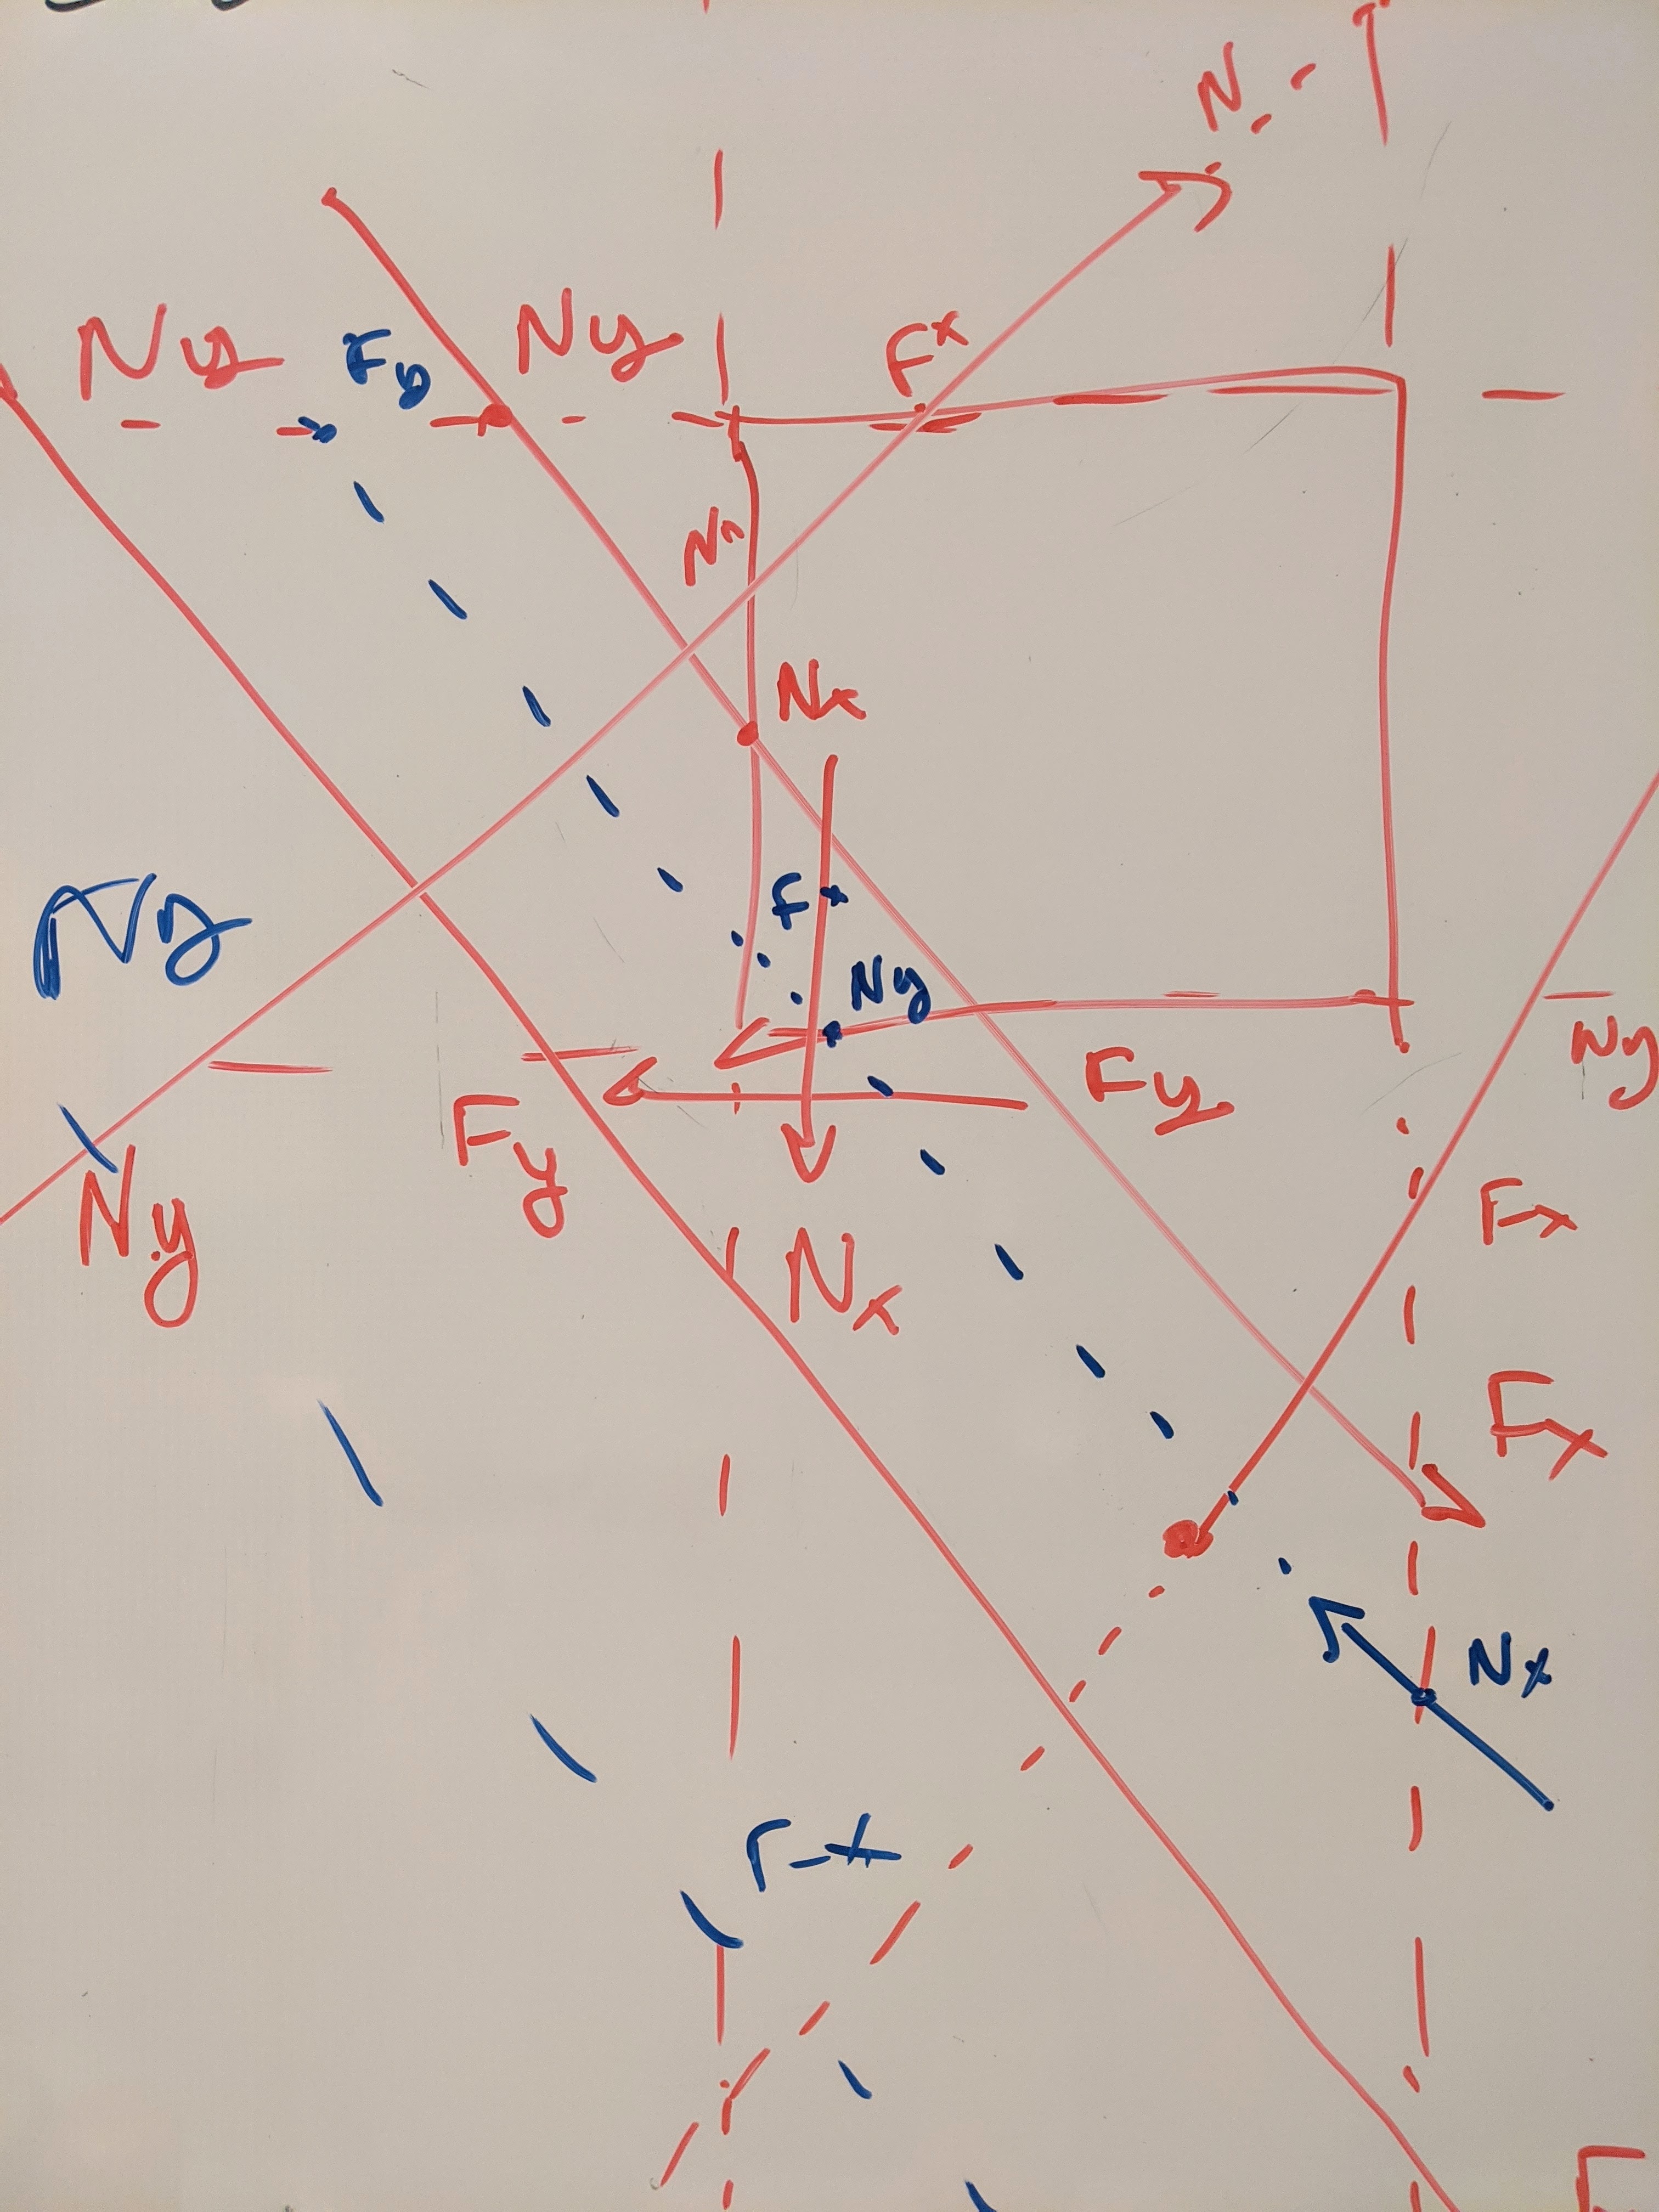 N
Ny
Fy
Ny
Fx
Nx
Fx
Ny
Ny
Fy
Fy
Ny
Ny
Fx
Nx
Fx
Nx